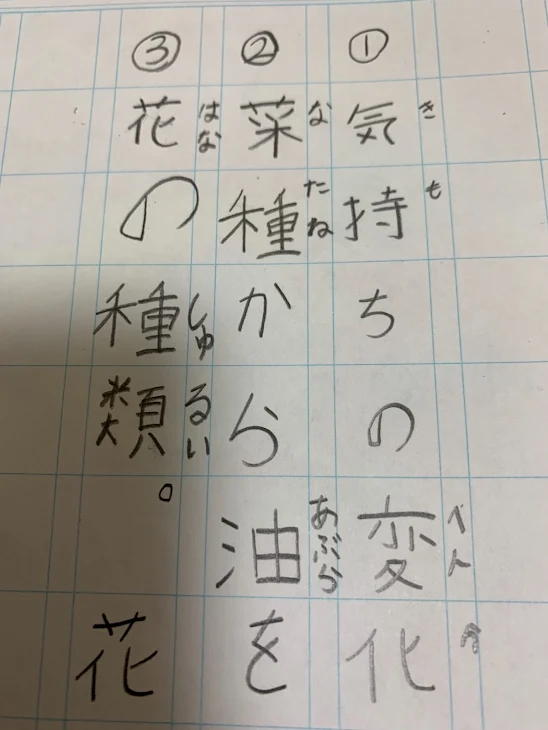 ①気持ちの変化
きもへんか
②菜種から油を
なたねあぶら
③花の種類。花
はなしゅるい